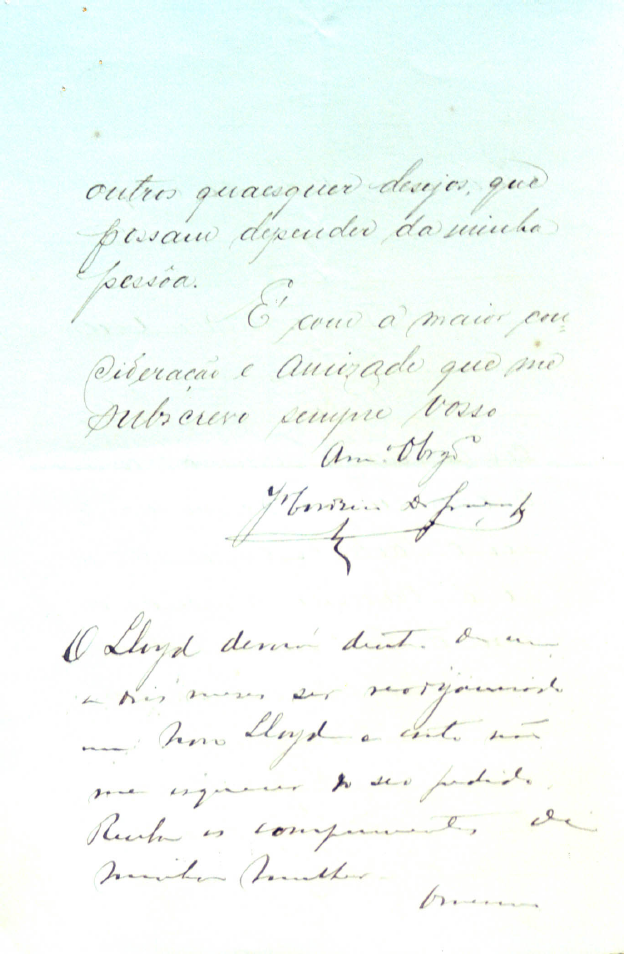 outros quaesquer desejos, que
possam depender da minha
pessôa.
É com a maior con-
sideração e amizade que me
subscrevo sempre Vosso
Amº Obrgº
O Lloyd deverá dentro de um
a dois mezes ser reorganisado
um Novo Lloyd e então não
me esquecerei do seu pedido.
Receba os comprimentos de
minha mulher